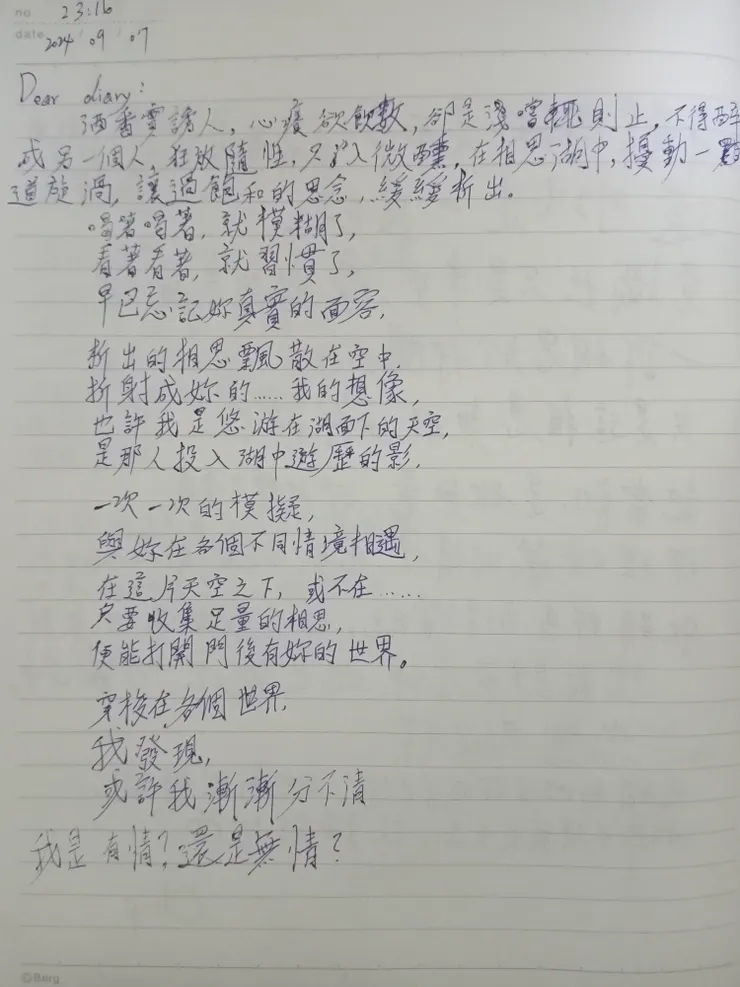 no 23:16
date 2024 / 09 / 07
Dear diary:
酒香雲誘人，心癢欲飲數，卻是淺嚐輒則止，不得醉
成另一個人，狂放隨性，只入微醺，在相思湖中，擾動一點
道旋渦，讓過飽和的思念，緩緩析出。
喝著喝著，就模糊了，
看著看著，就習慣了，
早已忘記妳真實的面容，
析出的相思飄散在空中，
折射成妳的……我的想像，
也許我是悠游在湖面下的天空，
是那人投入湖中遊歷的影，
一次一次的模擬，
與妳在各個不同情境相遇，
在這片天空之下，或不在……
只要收集足量的相思，
便能打開門後有妳的世界。
穿梭在各個世界，
我發現，
或許我漸漸分不清
我是有情？還是無情？
©Berg